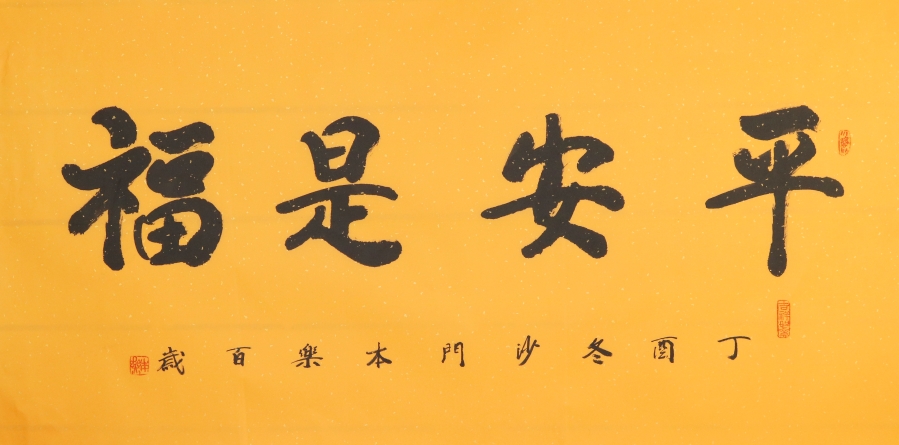 平安是福
丁酉冬沙門本樂百歲